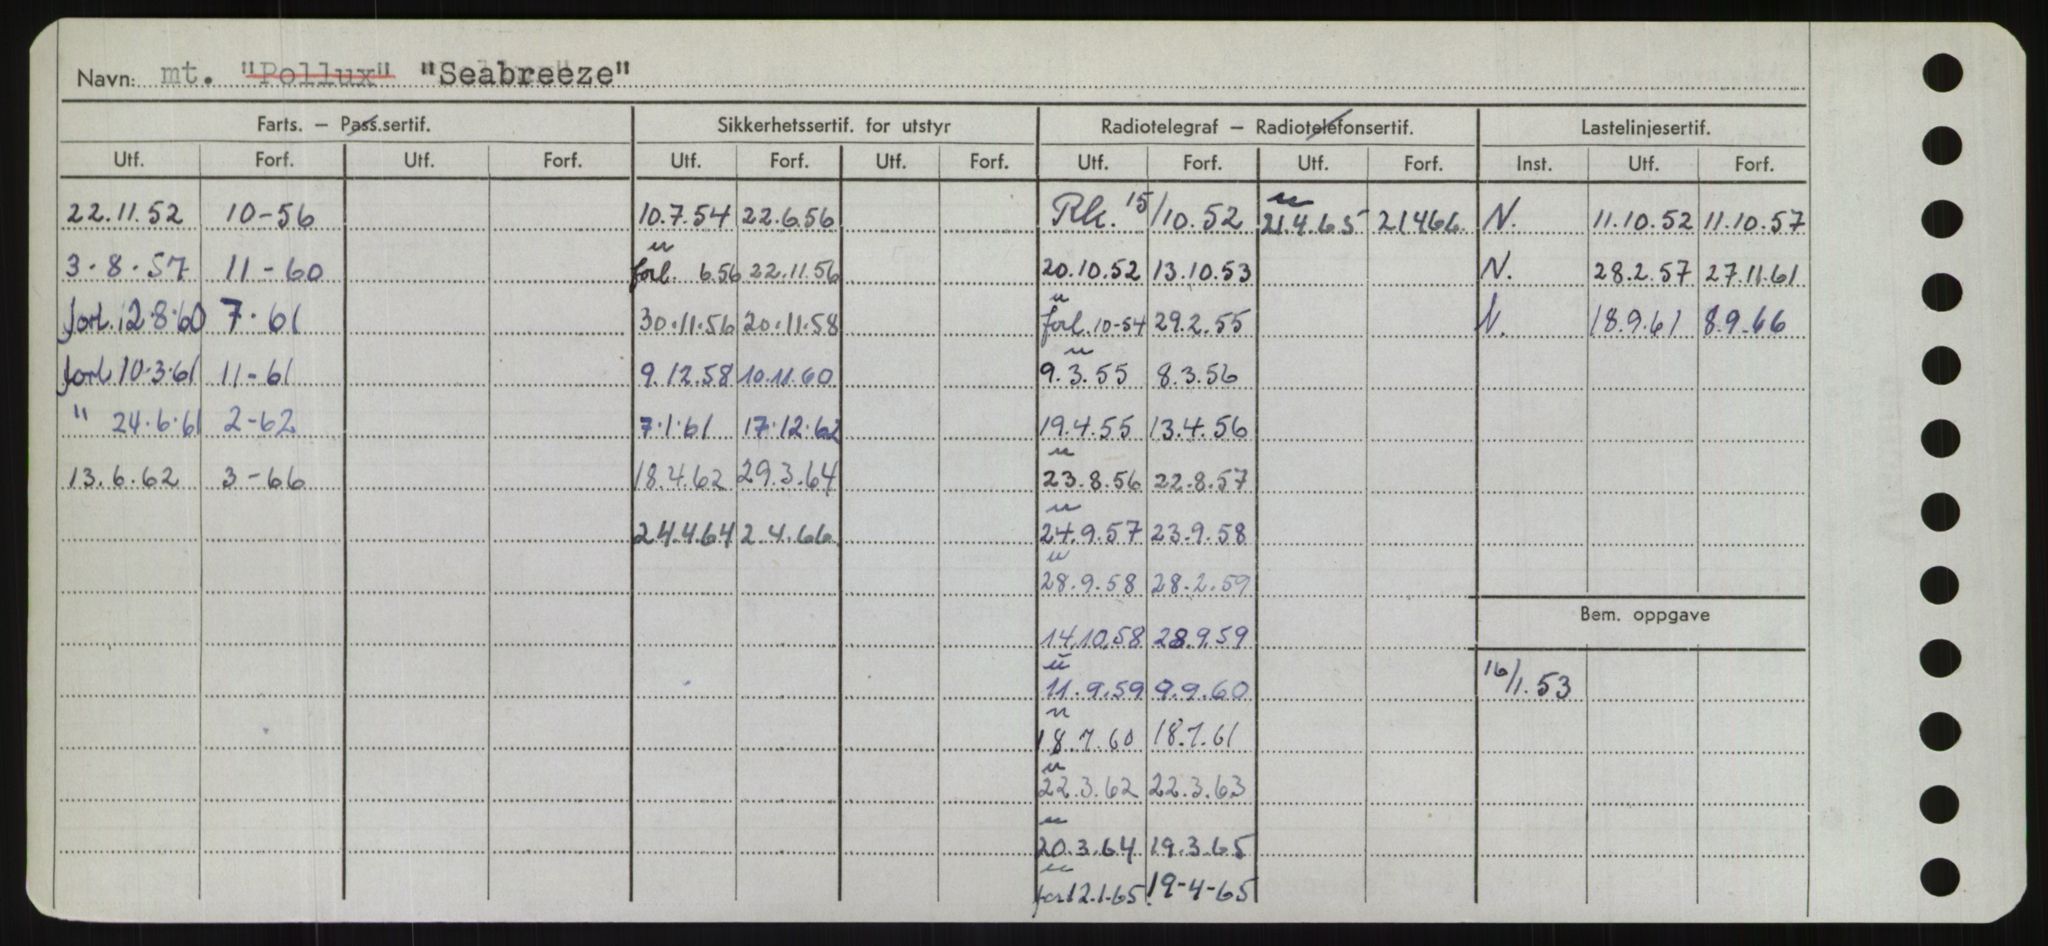 Navn: mt. "Pollux" "Seabreeze"
Farts. – Pass.sertif. Sikkerhetssertif. for utstyr Radiotelegraf – Radiotelefonsertif. Lastelinjesertif.
Utf. Forf. Utf. Forf. Utf. Forf. Utf. Forf. Utf. Forf. Utf. Forf. Inst. Utf. Forf.
22.11.52 10-56 10.7.54 22.6.56 Rk. 15/10.52 21.4.65 21466 N. 11.10.52 11.10.57
3.8.57 11-60 forl. 6.56 22.11.56 20.10.52 13.10.53 N. 28.2.57 27.11.61
forl. 12.8.60 7.61 30.11.56 20.11.58 forl. 10-54 29.2.55 N. 18.9.61 8.9.66
forl 10.3.61 11-61 9.12.58 10.11.60 9.3.55 8.3.56
" 24.6.61 2-62 7.1.61 17.12.62 19.4.55 13.4.56
13.6.62 3-66 18.4.62 29.3.64 23.8.56 22.8.57
24.4.64 2.4.66 24.9.57 23.9.58
28.9.58 28.2.59
Bem. oppgave
14.10.58 28.9.59
11.9.59 9.9.60 16/1.53
18.7.60 18.7.61
22.3.62 22.3.63
20.3.64 19.3.65
12.1.65 19-4-65